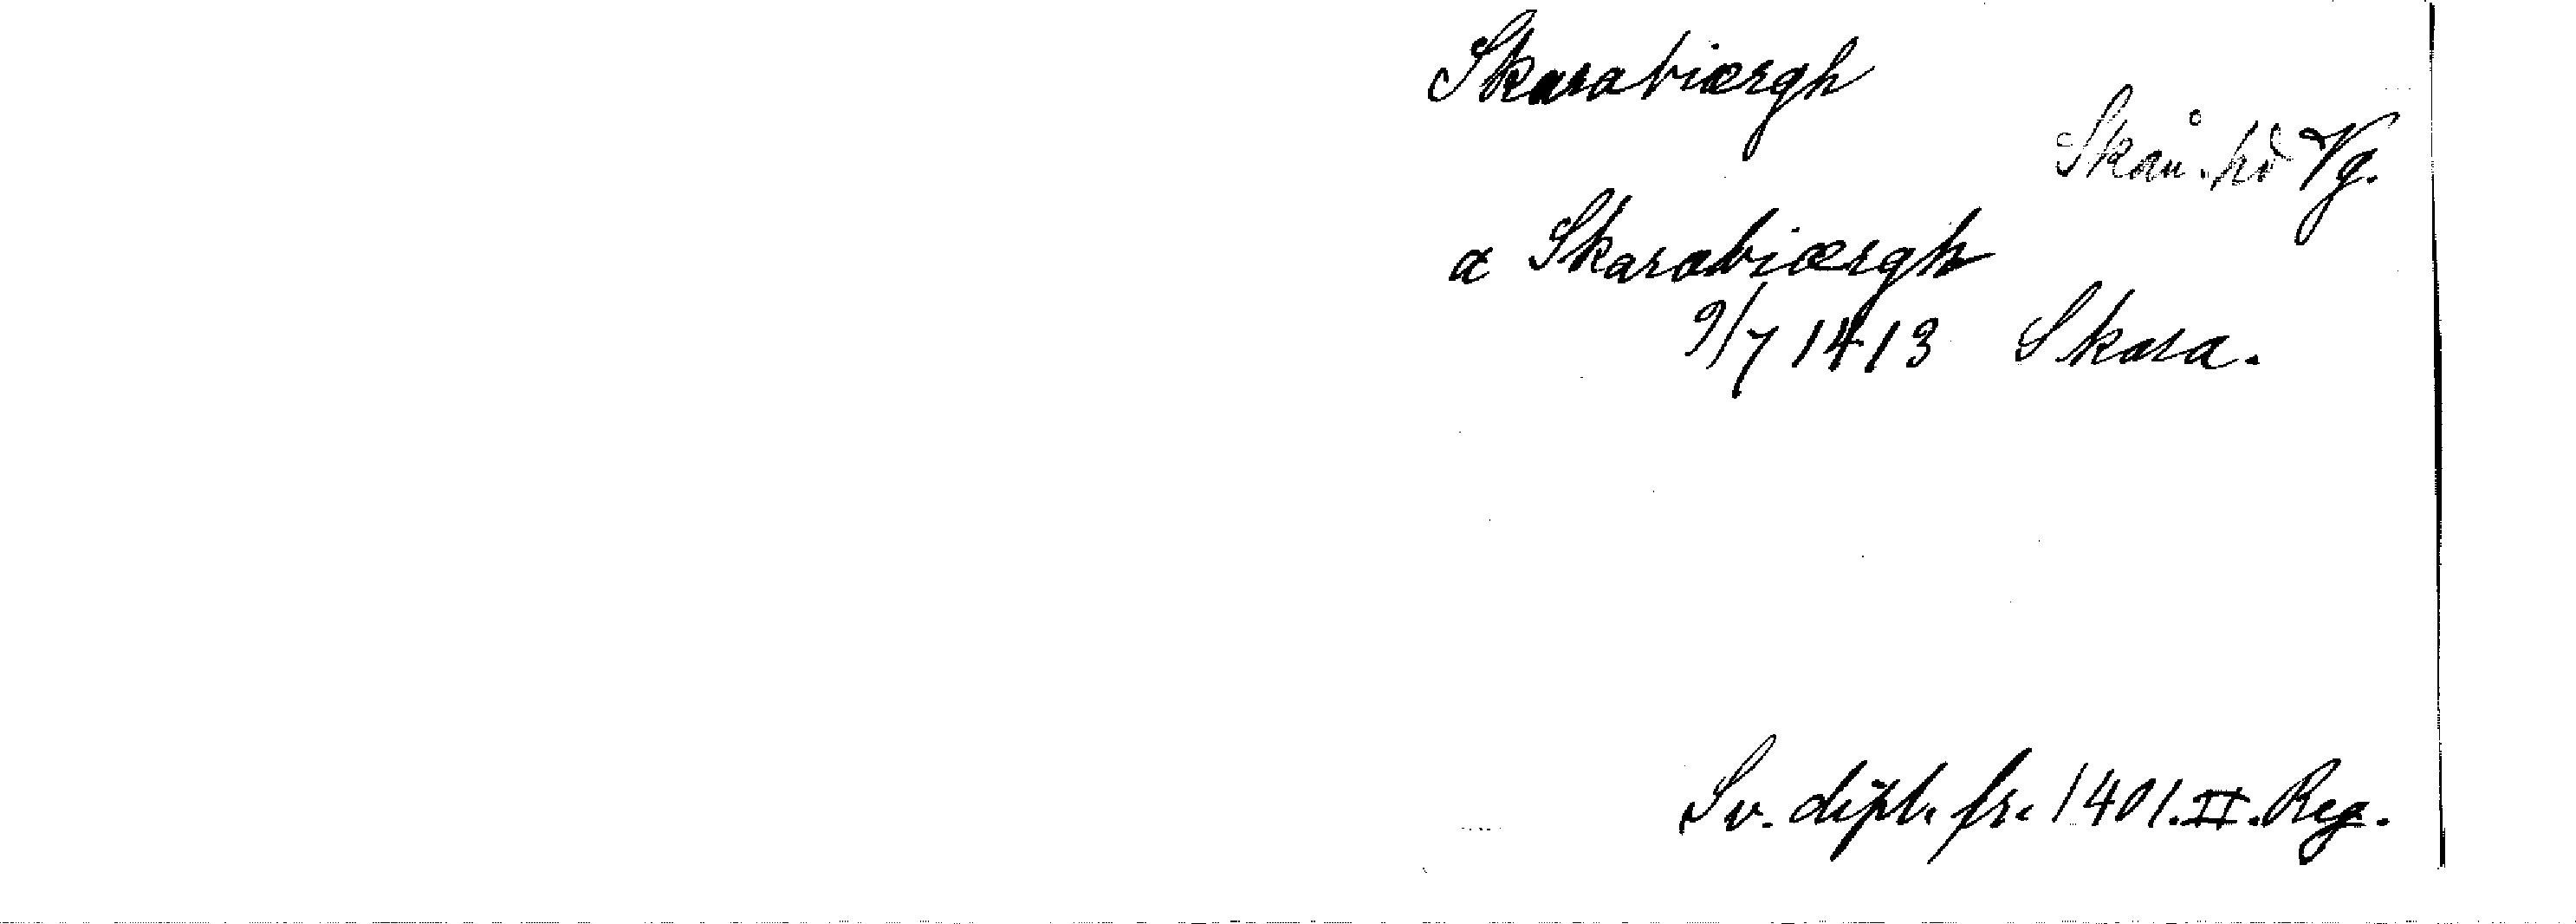 Skarabiærgh
Skån. hd Vg.
a Skarabiærgh
9/7 1413 Skara.
Sv. dipl. fr. 1401. II. Reg.